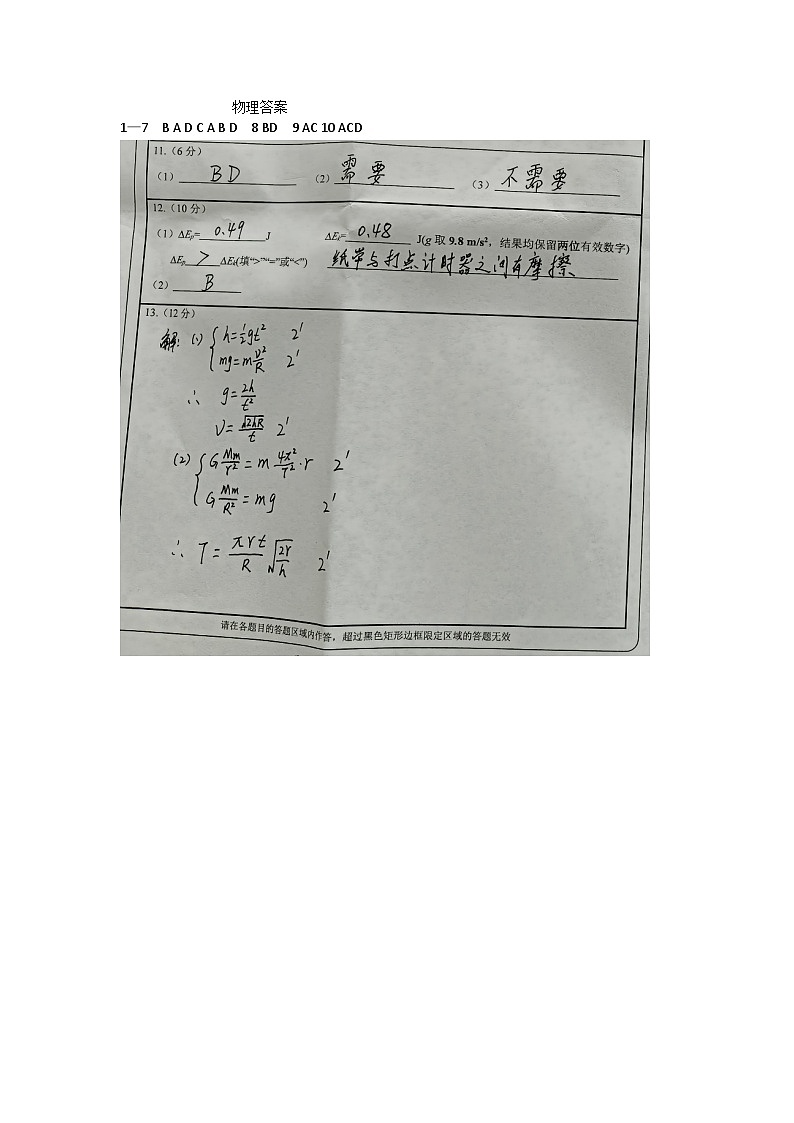 物理答案
1—7 B A D C A B D 8 BD 9 AC 10 ACD
11.（6 分）
（1） BD （2） 需要 （3） 不需要
12.（10 分）
（1）ΔEp= 0.49 J ΔEk= 0.48 J(g 取 9.8 m/s²，结果均保留两位有效数字)
ΔEp > ΔEk(填“>”“=”或“<”) 纸带与打点计时器之间有摩擦
（2） B
13.（12 分）
解: (1) { h=½gt² 2'
mg=m v²/R 2'
∴ g=2h/t²
v=√(2hR)/t 2'
(2) { G Mm/r² = m 4π²/T² · r 2'
G Mm/R² = mg 2'
∴ T = πrt/R √(2r/h) 2'
请在各题目的答题区域内作答，超过黑色矩形边框限定区域的答题无效